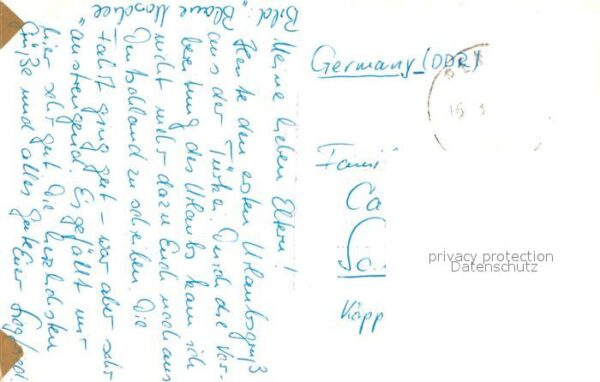 Bild: "Blaue Moschee"
Meine lieben Eltern!
Heute den ersten Urlaubsgruß
aus der Türkei. Durch die Vor-
bereitung des Urlaubs kam ich
nicht mehr dazu Euch noch aus
Deutschland zu schreiben. Die
Fahrt ging gut – war aber sehr
"anstrengend. Es gefällt mir
hier sehr gut. Die herzlichsten
Grüße und alles Gute
Euer
Germany (DDR)
16
Fami
Ca
So
Käpp
privacy protection
Datenschutz